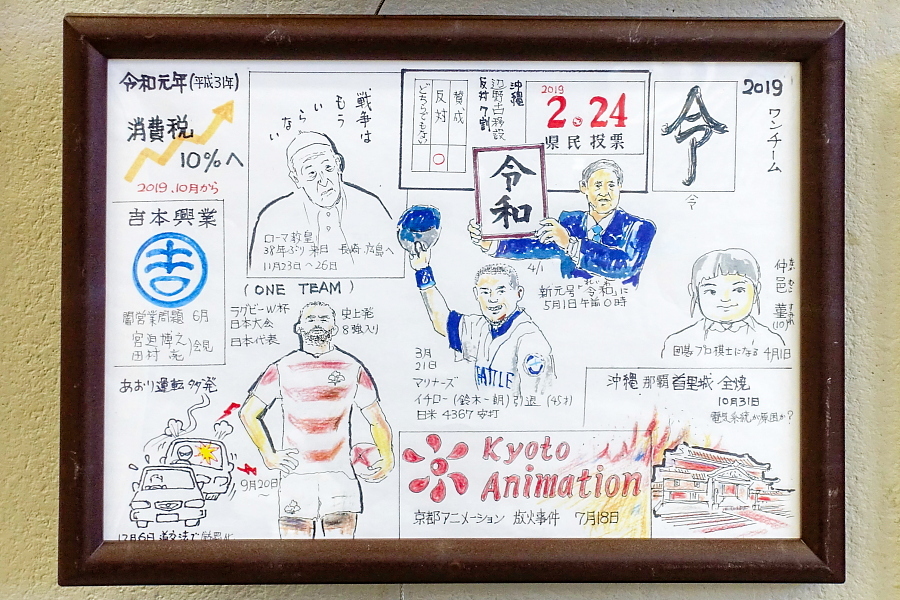 令和元年(平成31年)
消費税
10%へ
2019.10月から
吉本興業
吉
闇営業問題 6月
宮迫博之
田村 亮
会見
あおり運転多発
戦争は
もう
いら
ない
ローマ教皇
38年ぶり来日 長崎、広島へ
11月23日〜26日
(ONE TEAM)
ラグビーW杯
日本大会
日本代表
史上発
8強入り
9月20日
〜
沖縄
辺野古移設
反対7割
賛成
反対
どちらでもない
○
2019
2.24
県民投票
令和
4/1
新元号「令和」に
5月1日午前0時
令
令
2019
ワンチーム
3月
21日
マリナーズ
イチロー(鈴木一朗)引退 (45才)
日米 4367安打
仲邑 菫
(10才)
囲碁プロ棋士になる 4月1日
沖縄 那覇 首里城・全焼
10月31日
電気系統が原因か?
Kyoto
Animation
京都アニメーション 放火事件 7月18日
12月6日